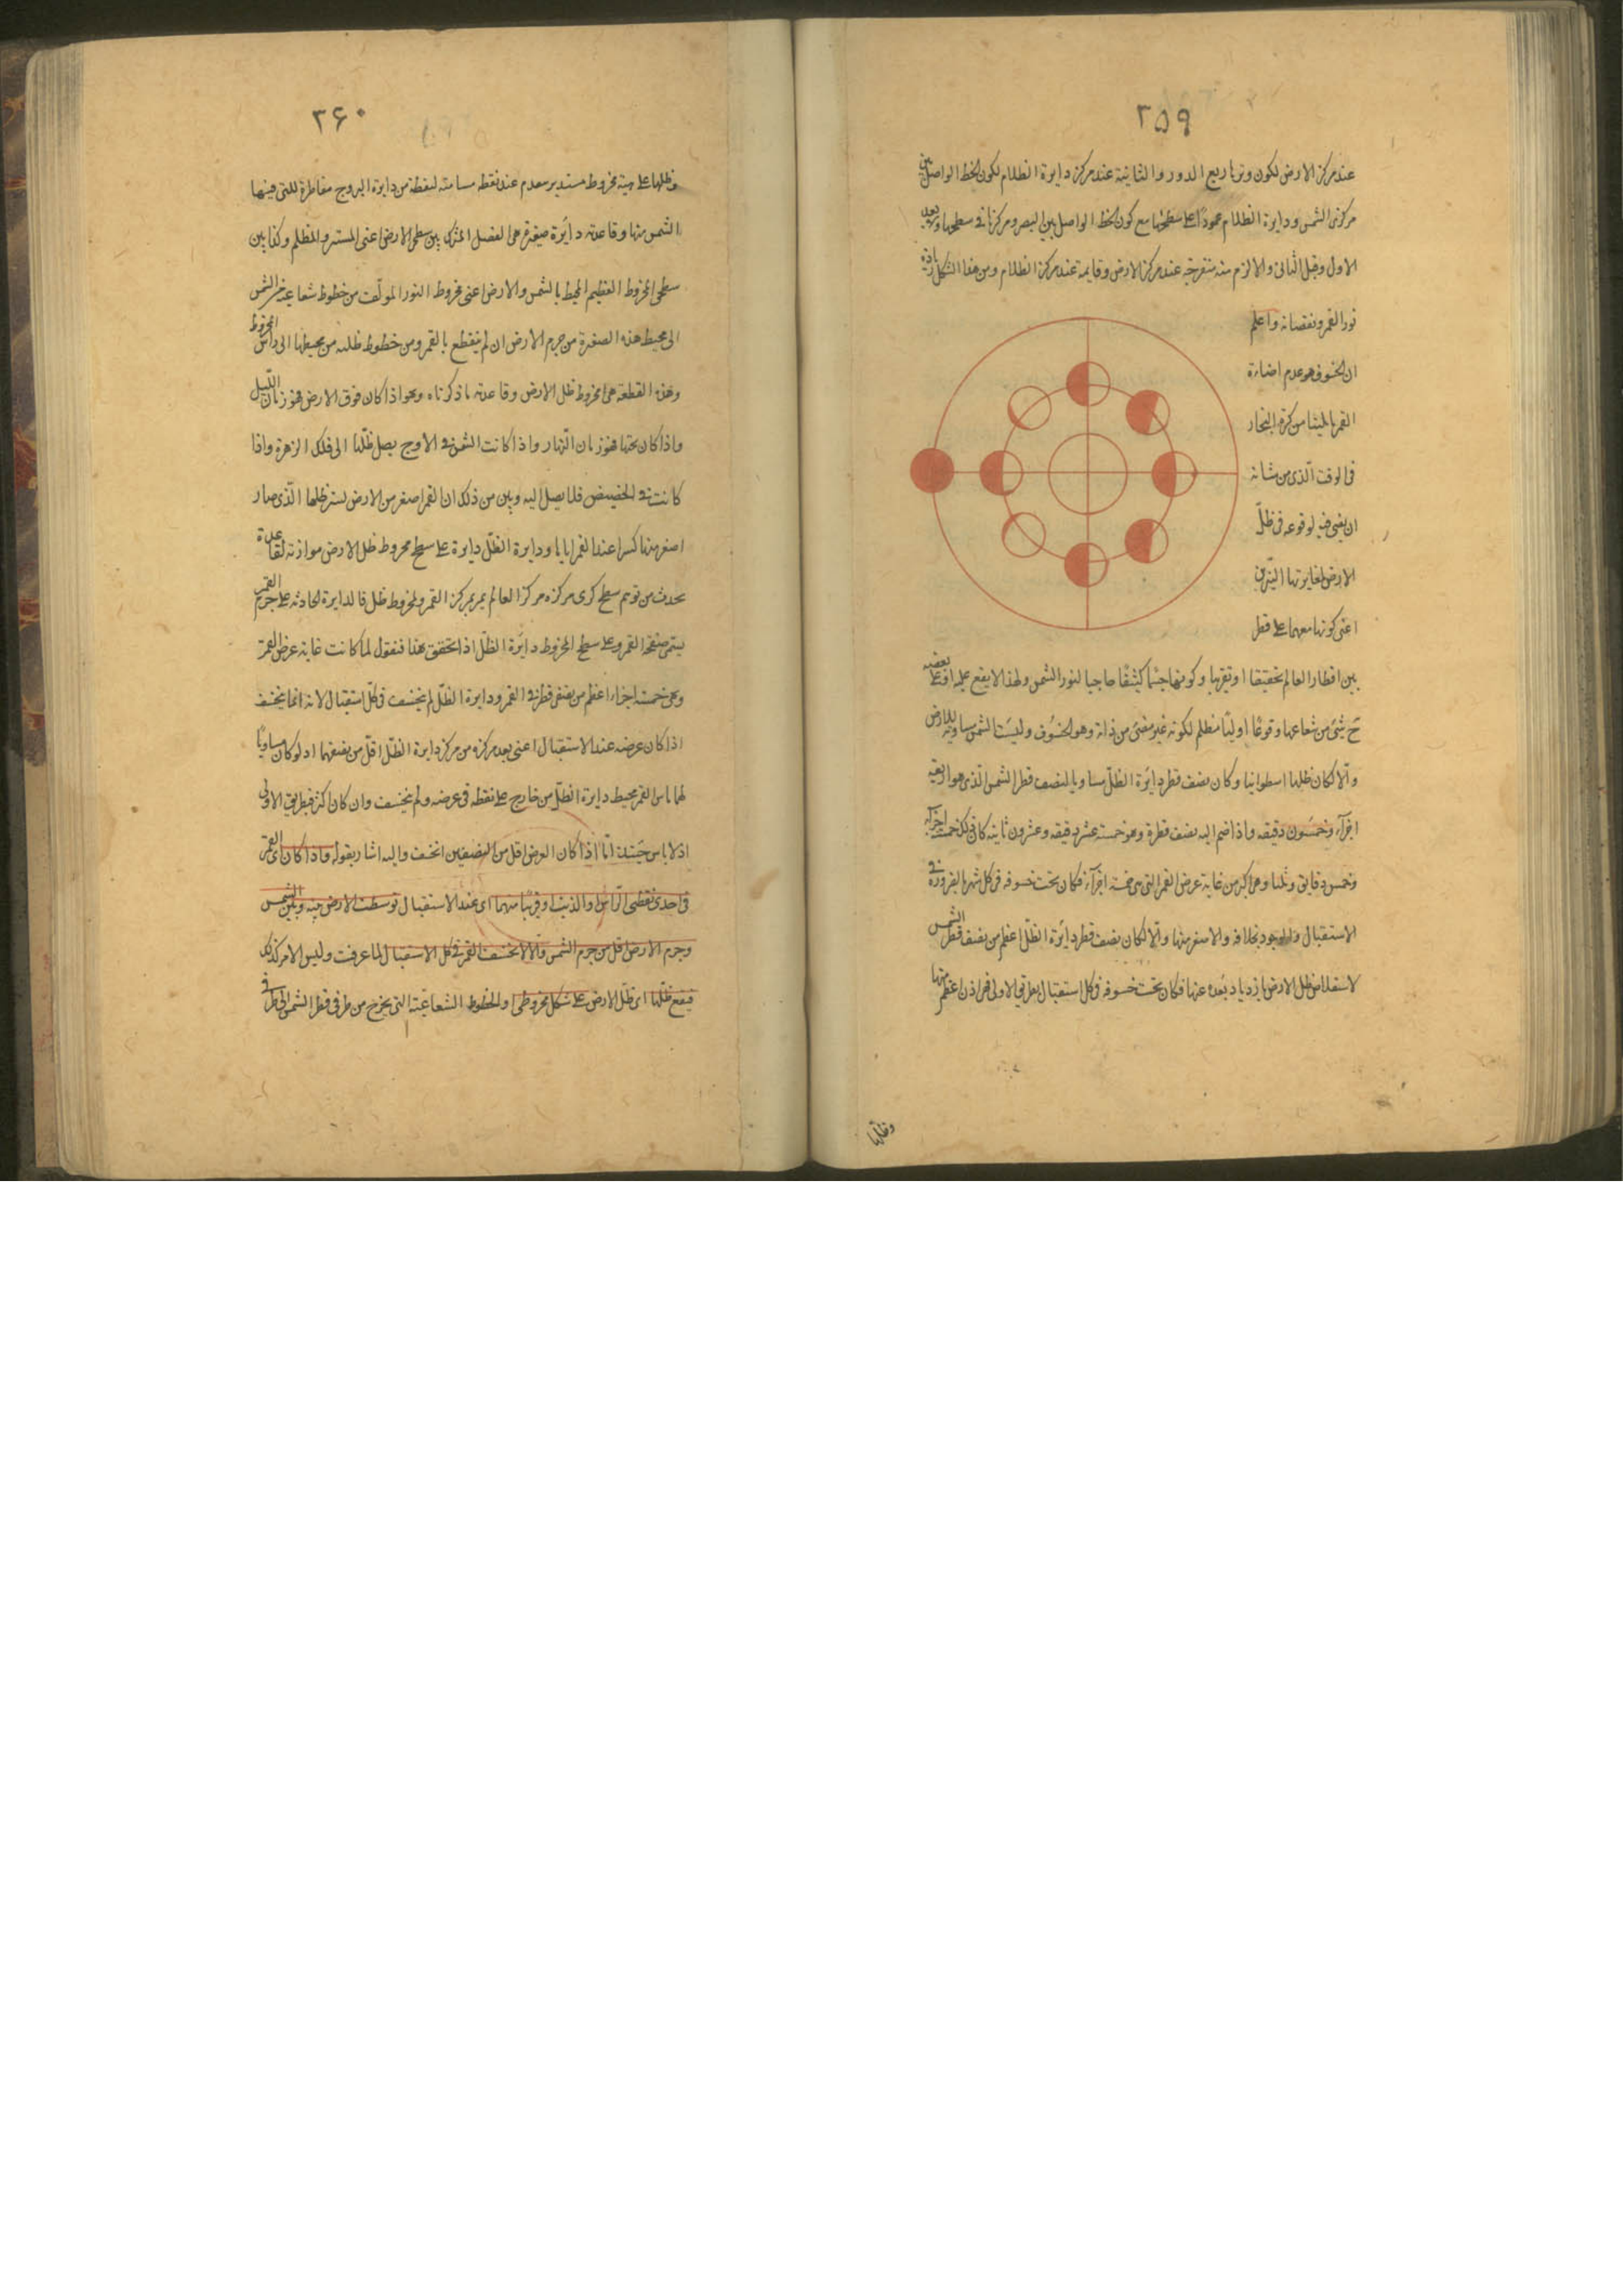 ٢٥٩
عند مركز الارض لكون وترها ربع الدور والثانية عند مركز دايرة الظلام لكون الخط الواصل بين
مركزى الشمس ودايرة الظلام عمودًا على سطحها مع كون الخط الواصل بين البصر ومركزها فى سطحها وبعد
الاول وقبل الثانى والالزم منه منفرجة عند مركز الارض وقايمة عند مركز الظلام ومن هذا الشكل زيادة
نور القمر ونقصانه واعلم
ان الخسوف هو عدم اضاءة
القمر ما يلينا من كرة البخار
فى الوقت الّذى من شانه
ان يضى فيه لوقوعه فى ظلّ
الارض النيّرين
اعنى كونها معهما على قطر
بين اقطار العالم تحقيقا او تقريبا وكونها جسما كثيفًا حاجبا لنور الشمس ولهذا لا يقع عليه او على بعضه
ح شئ من شعاعها وقوعًا اوليًا مظلم لكونه غير مضئ من ذاته وهو الخسوف وليست الشمس مساوية للارض
والّا لكان ظلها اسطوانيا وكان نصف قطر دايرة الظلّ مساويا لنصف قطر الشمس الّذى هو اربعة
اجزآء وخمسون دقيقه واذا ضم اليه نصف قطره وهو خمسة عشر دقيقه وعشرون ثانيه كان ذلك خمسة اجزآء
وخمس دقايق وثلثا وهى اكبر من غاية عرض القمر التى هى خمسة اجزآء فكان يجب خسوفه فى كل شهر بالضرورة فى
الاستقبال والوجود بخلافه ولا اصغر منها والّا لكان نصف قطر دايرة الظلّ اعظم من نصف قطر الشمس
لاستغلاظ ظل الارض بازدياد بعده عنها فكان يجب خسوفه فى كل استقبال بطريق الاولى فهى اذن اعظم منها
وظلّها
٢۶٠
وظلها على هيئة مخروط مستدير ينعدم عند نقطه مسامتة لنقطة من دايرة البروج مقاطرة للتى فيها
الشمس منها وقاعدته دايرة صغيرة هى الفصل المشترك بين سطحى الارض اعنى المستنير والمظلم وكذا بين
سطحى المخروط العظيم المحيط بالشمس والارض اعنى مخروط النور المولّف من خطوط شعاعية من الشمس
الى محيط هذه الصغيرة من جرم الارض ان لم ينقطع بالقمر ومن خطوط ظلية من محيطها الى راس المخروط
وهذه القطعة هى مخروط ظل الارض وقاعدته ما ذكرناه وهو اذا كان فوق الارض فهو زمان اللّيل
واذا كان تحتها فهو زمان النّهار واذا كانت الشمس فى الاوج يصل ظلّها الى فلك الزهرة واذا
كانت فى الحضيض فلا يصل اليه وبين من ذلك ان القمر اصغر من الارض لستر ظلها الّذى صار
اصغر منها كسرا عند القمر اياها ودايرة الظلّ دايرة على سطح مخروط ظل الارض موازنة لقاعدة
يحدث من توهم سطح كرى مركزه مركز العالم يمر بمركز القمر ومخروط ظل فالدايرة الحادثة على جرم القمر
يسمى صفحة القمر وعلى سطح المخروط دايرة الظلّ اذا تحقق هذا فنقول لما كانت غاية عرض القمر
وهى خمسة اجزاء اعظم من نصفى قطرى القمر ودايرة الظلّ لم ينخسف فى كلّ استقبال لانه انما ينخسف
اذا كان عرضه عند الاستقبال اعنى بعد مركزه من مركز دايرة الظلّ اقلّ من نصفهما اذ لو كان مساويًا
لهما ماس القمر محيط دايرة الظلّ من خارج على نقطه فى عرضه ولم ينخسف وان كان اكثر فبطريق الاولى
اذ لا يماس حينئذ امّا اذا كان العرض اقل من النصفين انخسف واليه اشار بقوله واذا كان اى القمر
فى احدى نقطتى الرّاس او الذنب او قريبًا منهما اى عند الاستقبال توسطت الارض بينه وبين الشمس
وجرم الارض اقل من جرم الشمس والّا لانخسف القمر فى كل الاستقبال لما عرفت وليس الامر كذلك
فيقع ظلّها اى ظلّ الارض على شكل مخروطى والخطوط الشعاعيّة التى يخرج من طرفى قطر الشمس الى طرفى